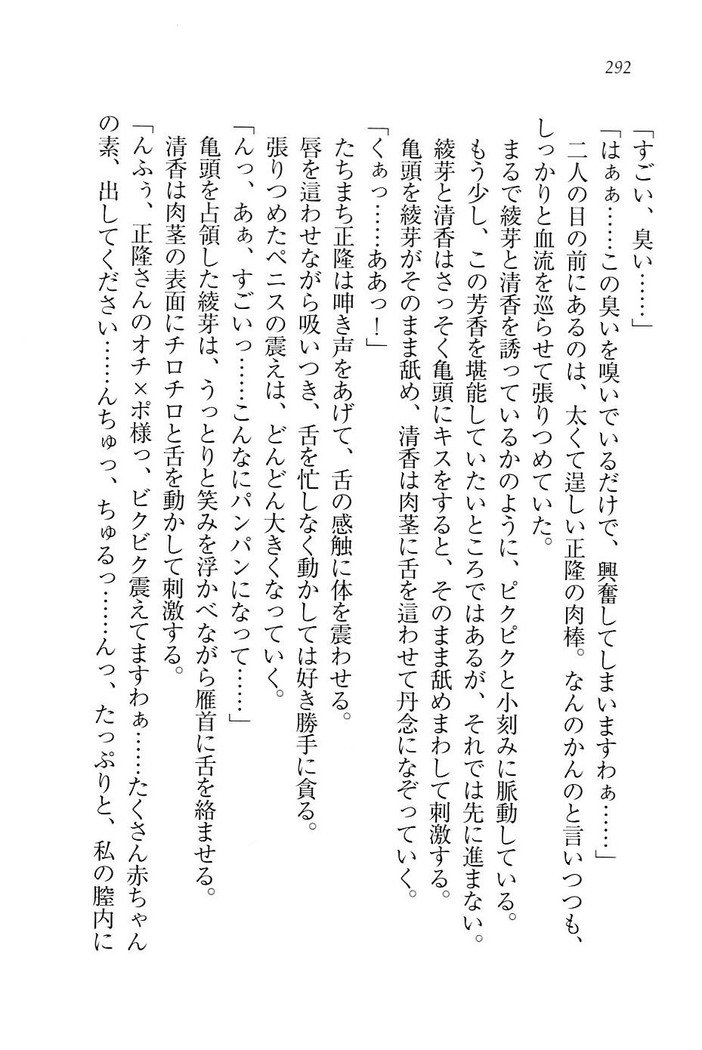 292
「すごい、臭い……」
「はぁぁ……この臭いを嗅いでいるだけで、興奮してしまいますわぁ……」
二人の目の前にあるのは、太くて逞しい正隆の肉棒。なんのかんのと言いつつも、
しっかりと血流を巡らせて張りつめていた。
まるで綾芽と清香を誘っているかのように、ピクピクと小刻みに脈動している。
もう少し、この芳香を堪能していたいところではあるが、それでは先に進まない。
綾芽と清香はさっそく亀頭にキスをすると、そのまま舐めまわして刺激する。
亀頭を綾芽がそのまま舐め、清香は肉茎に舌を這わせて丹念になぞっていく。
「くぁっ……ああっ！」
たちまち正隆は呻き声をあげて、舌の感触に体を震わせる。
唇を這わせながら吸いつき、舌を忙しなく動かしては好き勝手に貪る。
張りつめたペニスの震えは、どんどん大きくなっていく。
「んっ、あぁ、すごいっ……こんなにパンパンになって……」
亀頭を占領した綾芽は、うっとりと笑みを浮かべながら雁首に舌を絡ませる。
清香は肉茎の表面にチロチロと舌を動かして刺激する。
「んふぅ、正隆さんのオチ×ポ様っ、ビクビク震えてますわぁ……たくさん赤ちゃん
の素、出してください……んちゅっ、ちゅるっ……んっ、たっぷりと、私の膣内に